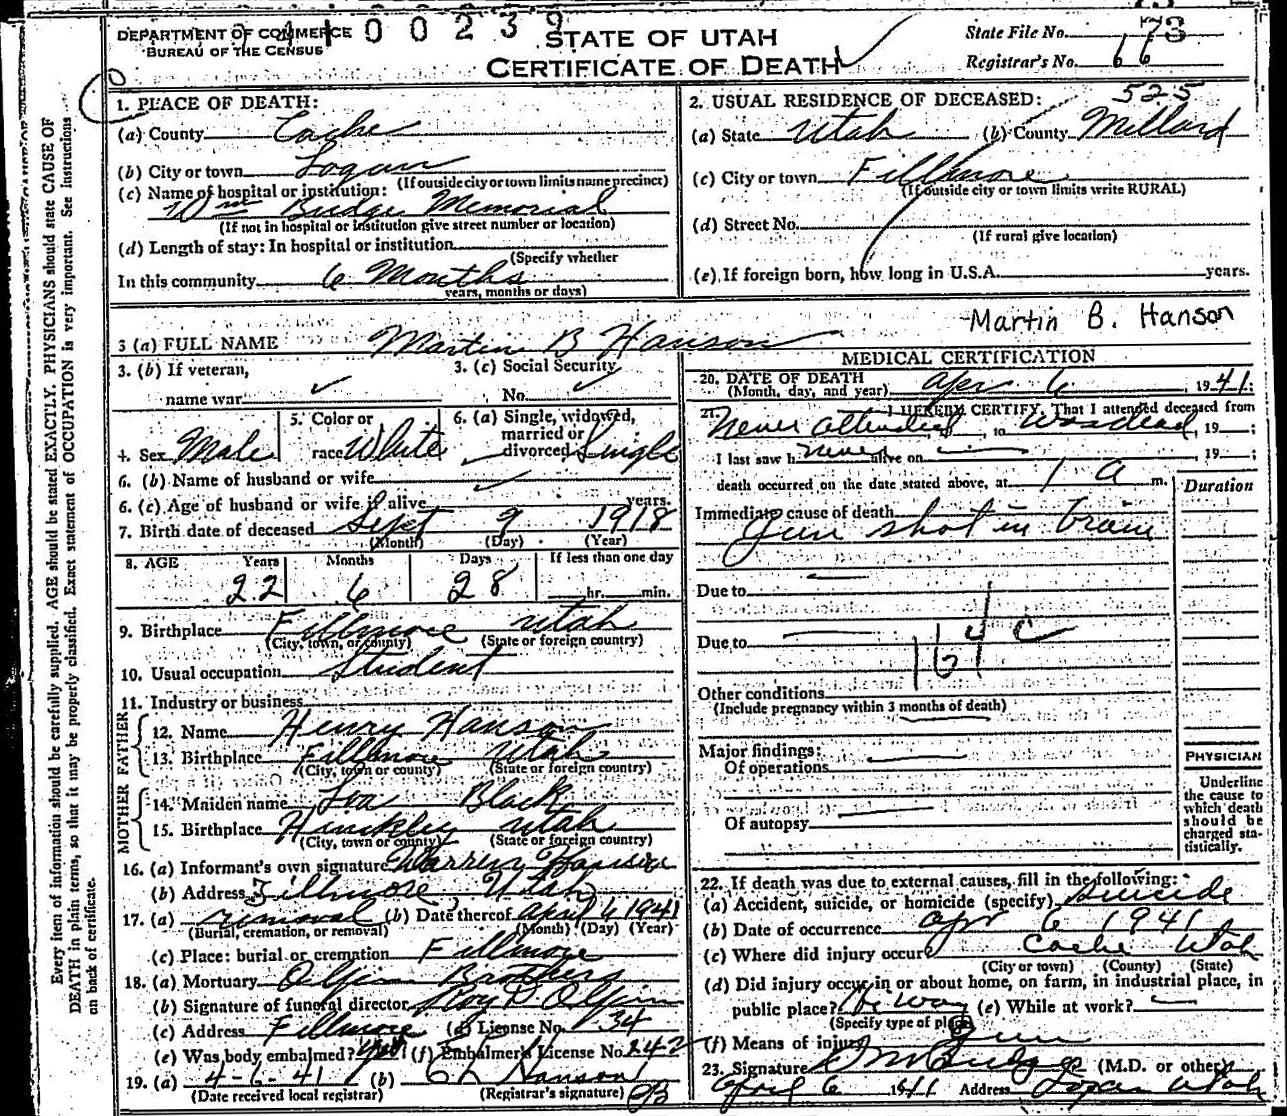 DEPARTMENT OF COMMERCE
BUREAU OF THE CENSUS
00239
STATE OF UTAH
CERTIFICATE OF DEATH
State File No. 73
Registrar's No. 66
Every item of information should be carefully supplied. AGE should be stated EXACTLY. PHYSICIANS should state CAUSE OF
DEATH in plain terms, so that it may be properly classified. Exact statement of OCCUPATION is very important. See instructions
on back of certificate.
1. PLACE OF DEATH:
(a) County Cache
(b) City or town Logan
(If outside city or town limits name precinct)
(c) Name of hospital or institution:
Wm Budge Memorial
(If not in hospital or institution give street number or location)
(d) Length of stay: In hospital or institution
(Specify whether
In this community 6 Months
years, months or days)
2. USUAL RESIDENCE OF DECEASED: 525
(a) State Utah (b) County Millard
(c) City or town Fillmore
(If outside city or town limits write RURAL)
(d) Street No.
(If rural give location)
(e) If foreign born, how long in U.S.A. years.
Martin B. Hanson
3 (a) FULL NAME Martin B Hanson
3. (b) If veteran,
name war
3. (c) Social Security
No.
4. Sex Male
5. Color or
race White
6. (a) Single, widowed,
married or
divorced Single
6. (b) Name of husband or wife
6. (c) Age of husband or wife if alive years.
7. Birth date of deceased Sept 9 1918
(Month) (Day) (Year)
8. AGE Years Months Days If less than one day
22 6 28 hr. min.
9. Birthplace Fillmore Utah
(City, town, or county) (State or foreign country)
10. Usual occupation Student
11. Industry or business
FATHER
12. Name Henry Hanson
13. Birthplace Fillmore Utah
(City, town or county) (State or foreign country)
MOTHER
14. Maiden name Black
15. Birthplace Hinckley Utah
(City, town or county) (State or foreign country)
16. (a) Informant's own signature Warren Hanson
(b) Address Fillmore, Utah
17. (a) removal (b) Date thereof April 6 1941
(Burial, cremation, or removal) (Month) (Day) (Year)
(c) Place: burial or cremation Fillmore
18. (a) Mortuary Olpin Brothers
(b) Signature of funeral director Roy P. Olpin
(c) Address Fillmore (d) License No. 34
(e) Was body embalmed? yes (f) Embalmer's License No. 242
19. (a) 4-6-41 (b) Hanson
(Date received local registrar) (Registrar's signature)
MEDICAL CERTIFICATION
20. DATE OF DEATH
(Month, day, and year) Apr 6, 1941;
21. I HEREBY CERTIFY, That I attended deceased from
Never attended, to Was dead, 19 ;
I last saw h never alive on , 19 ;
death occurred on the date stated above, at 1 a m.
Duration
Immediate cause of death
Gun shot in brain
Due to
Due to
164 c
Other conditions
(Include pregnancy within 3 months of death)
Major findings:
Of operations
Of autopsy
PHYSICIAN
Underline
the cause to
which death
should be
charged sta-
tistically.
22. If death was due to external causes, fill in the following:
(a) Accident, suicide, or homicide (specify) Suicide
(b) Date of occurrence Apr 6 1941
(c) Where did injury occur Cache Utah
(City or town) (County) (State)
(d) Did injury occur in or about home, on farm, in industrial place, in
public place? Hi way (e) While at work?
(Specify type of place)
(f) Means of injury Gun
23. Signature Budge (M.D. or other)
April 6 1941 Address Logan Utah